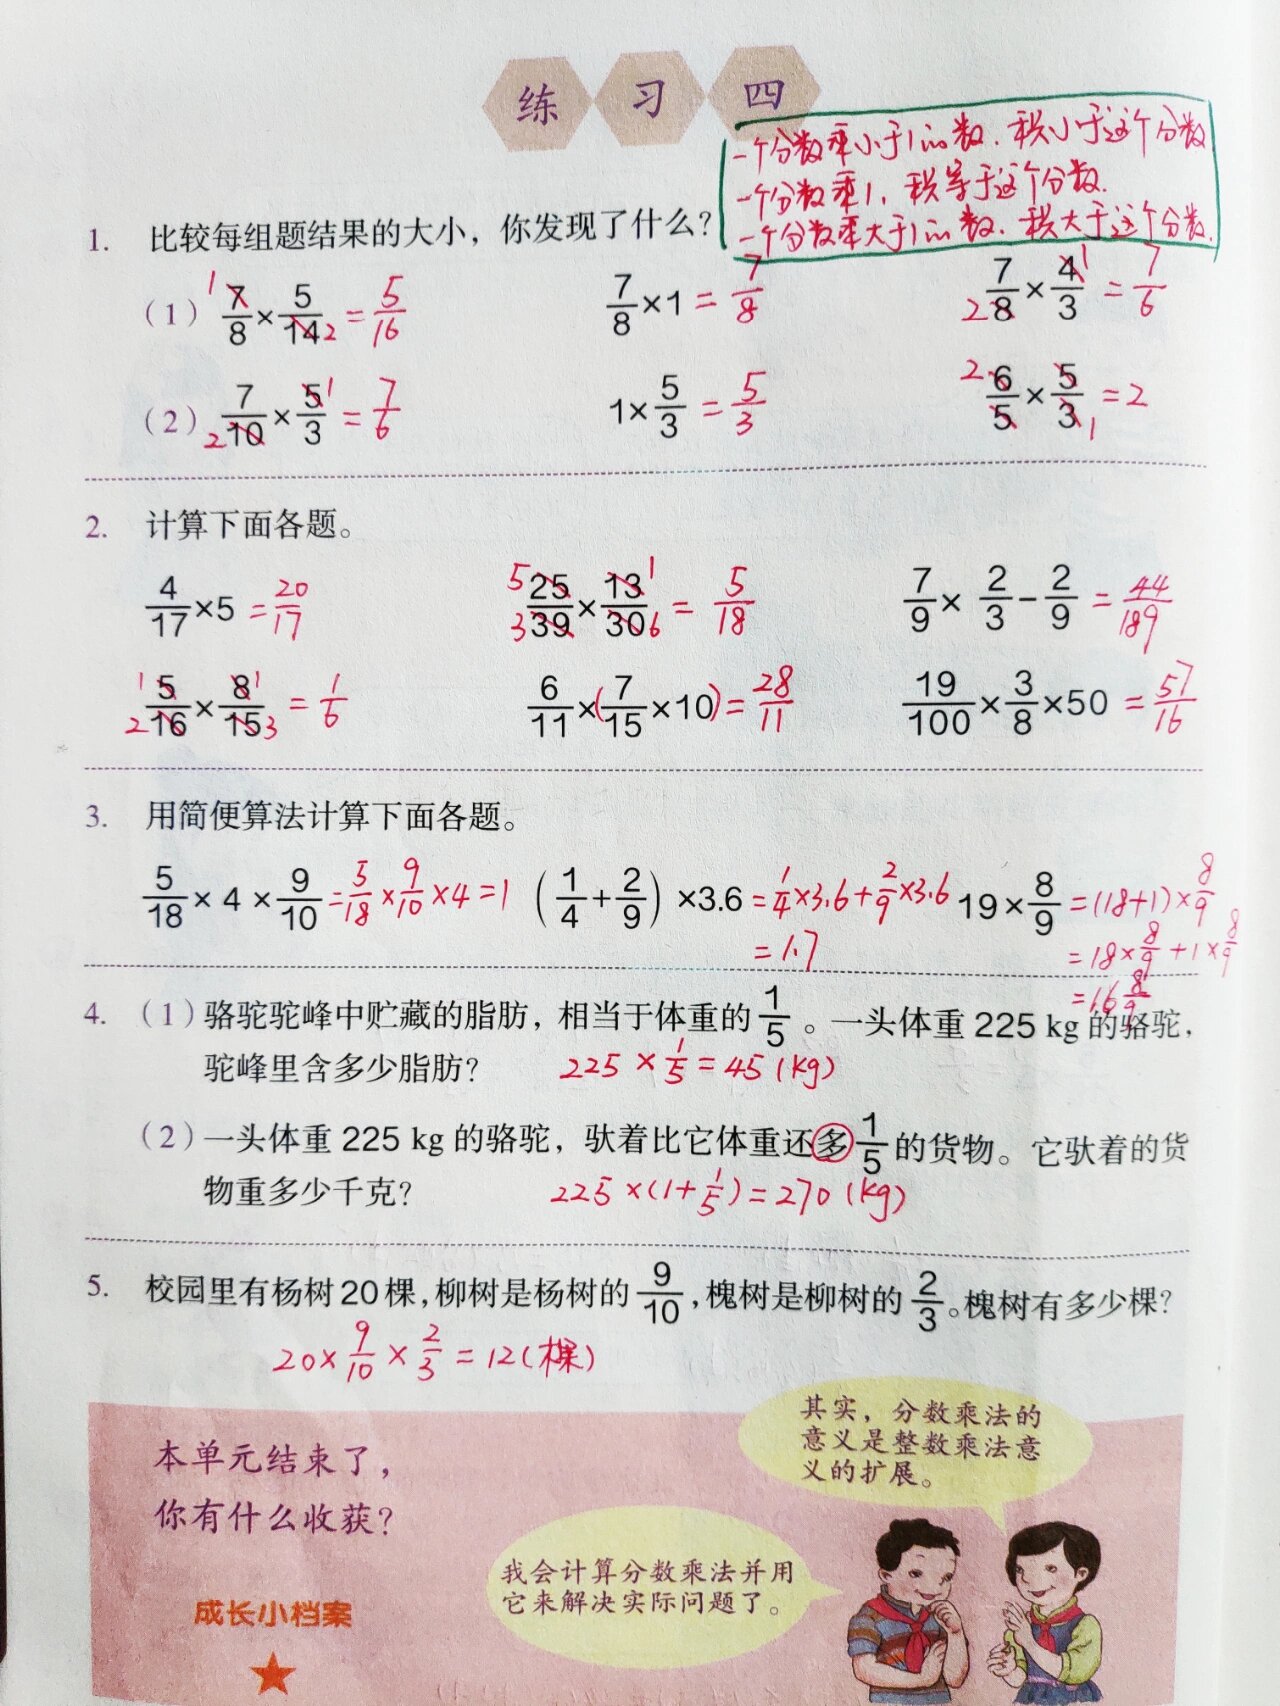 练习四
一个分数乘小于1的数,积小于这个分数
一个分数乘1,积等于这个分数.
一个分数乘大于1的数,积大于这个分数.
1. 比较每组题结果的大小，你发现了什么？
（1） 7/8×5/14=5/16 7/8×1=7/8 7/8×4/3=7/6
（2） 7/10×5/3=7/6 1×5/3=5/3 6/5×5/3=2
2. 计算下面各题。
4/17×5=20/17 25/39×13/30=5/18 7/9×2/3-2/9=44/189
5/16×8/15=1/6 6/11×(7/15×10)=28/11 19/100×3/8×50=57/16
3. 用简便算法计算下面各题。
5/18×4×9/10=5/18×9/10×4=1 (1/4+2/9)×3.6=1/4×3.6+2/9×3.6 19×8/9=(18+1)×8/9
=1.7 =18×8/9+1×8/9
=16 8/9
4. （1）骆驼驼峰中贮藏的脂肪，相当于体重的1/5。一头体重225 kg的骆驼，
驼峰里含多少脂肪？ 225×1/5=45(kg)
（2）一头体重225 kg的骆驼，驮着比它体重还多1/5的货物。它驮着的货
物重多少千克？ 225×(1+1/5)=270(kg)
5. 校园里有杨树20棵，柳树是杨树的9/10，槐树是柳树的2/3。槐树有多少棵？
20×9/10×2/3=12(棵)
其实，分数乘法的
意义是整数乘法意
义的扩展。
本单元结束了，
你有什么收获？
我会计算分数乘法并用
它来解决实际问题了。
成长小档案